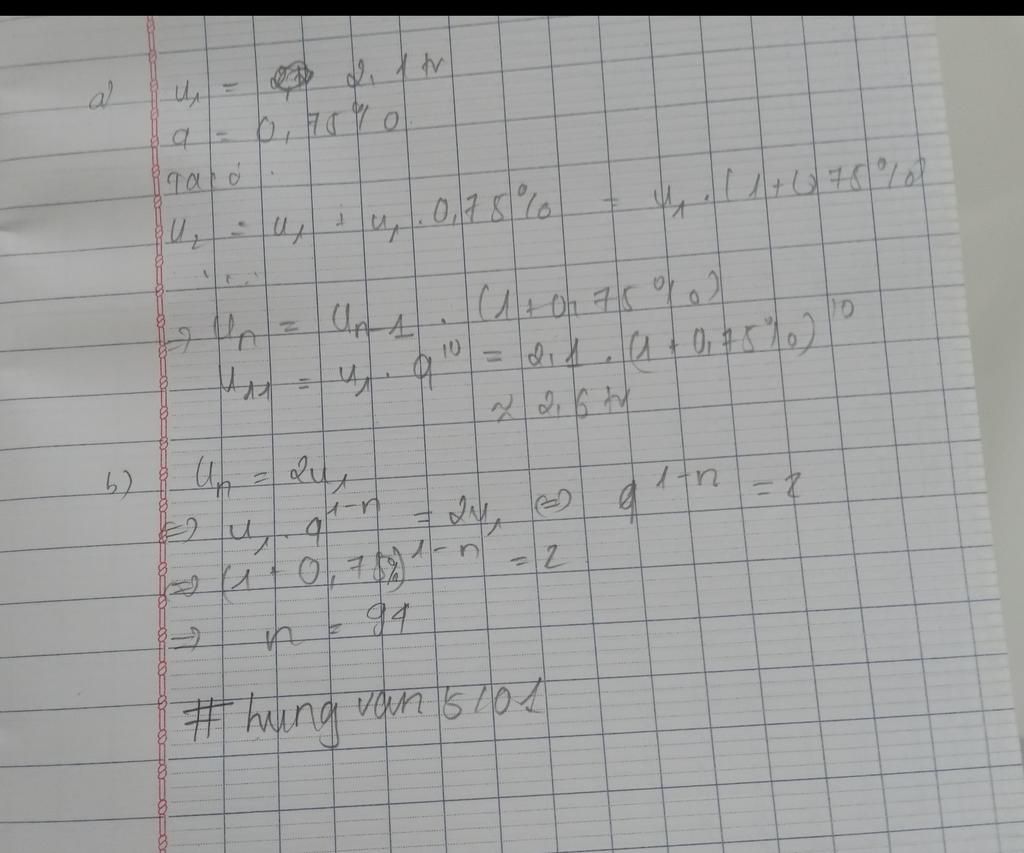 a) u₁ = 2,1 tr
q = 0,75%
Ta có:
u₂ = u₁ + u₁ . 0,75% = u₁ . (1+0,75%)
....
=> Un = Un-1 . (1+0,75%)
U₁₁ = u₁ . q¹⁰ = 2,1 . (1+0,75%)¹⁰
≈ 2,6 tr
b) Un = 2u₁
=> u₁ . q^1-n = 2u₁ <=> q^1-n = 2
=> (1+0,75%)^1-n = 2
=> n = 94
# hungvan5101